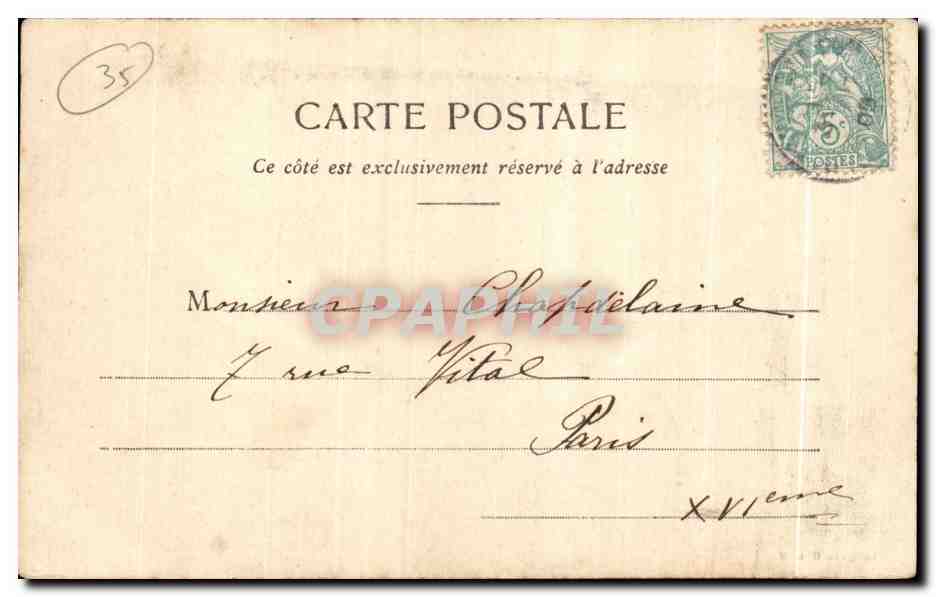 35
CARTE POSTALE
Ce côté est exclusivement réservé à l'adresse
5c
POSTES
03
Monsieur Chapdelaine
CPAPHIL
7 rue Vital
Paris
XVIeme